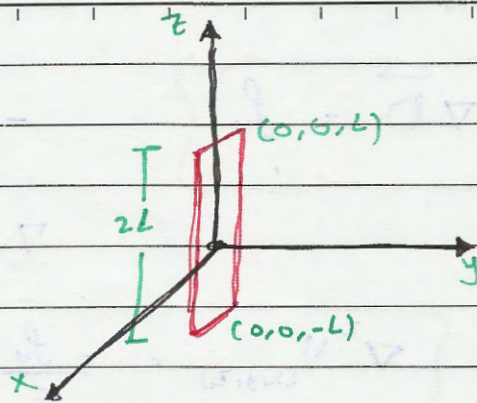 z
(0,0,L)
2L
y
(0,0,-L)
x